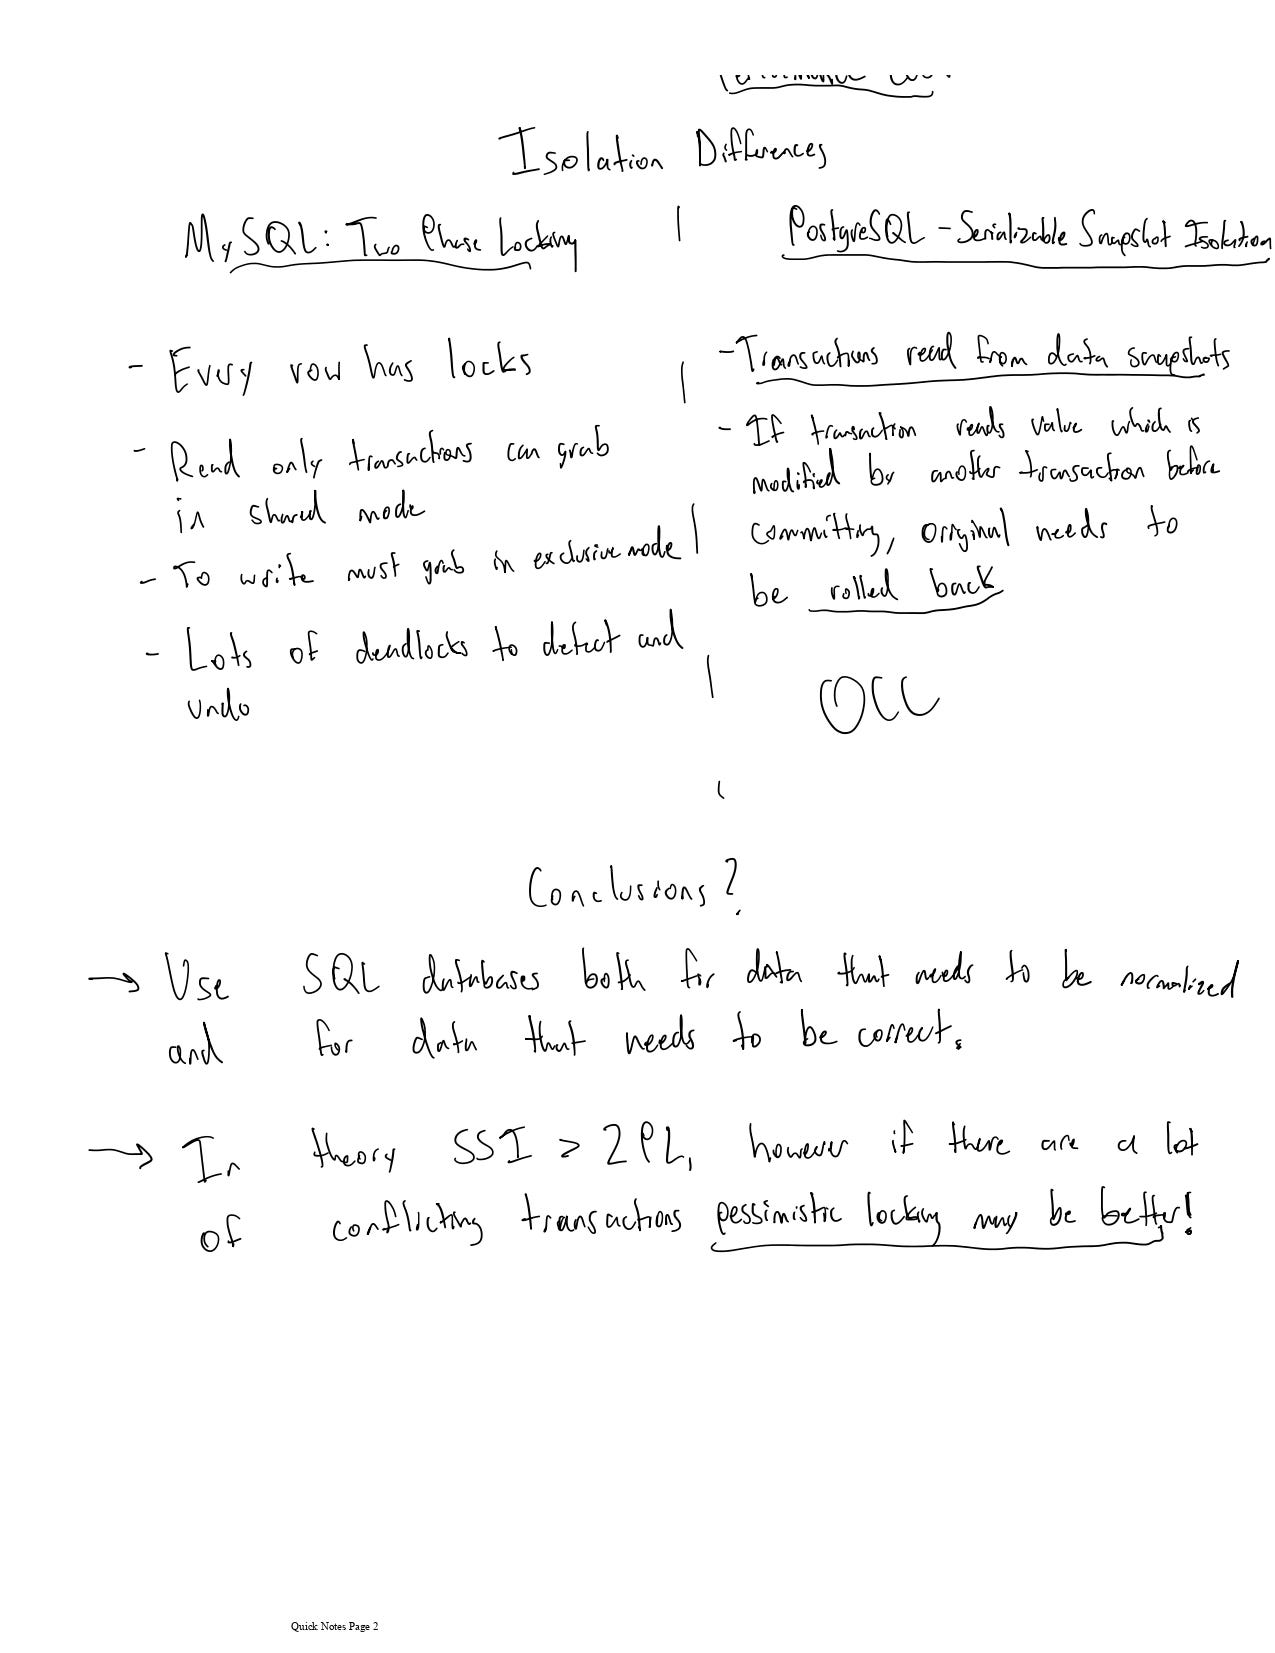 Isolation Differences
MySQL: Two Phase Locking
- Every row has locks
- Read only transactions can grab
in shared mode
- To write must grab in exclusive mode
- Lots of deadlocks to detect and
undo
PostgreSQL - Serializable Snapshot Isolation
- Transactions read from data snapshots
- If transaction reads value which is
modified by another transaction before
committing, original needs to
be rolled back
OCC
Conclusions?
→ Use SQL databases both for data that needs to be normalized
and for data that needs to be correct.
→ In theory SSI > 2PL, however if there are a lot
of conflicting transactions pessimistic locking may be better!
Quick Notes Page 2